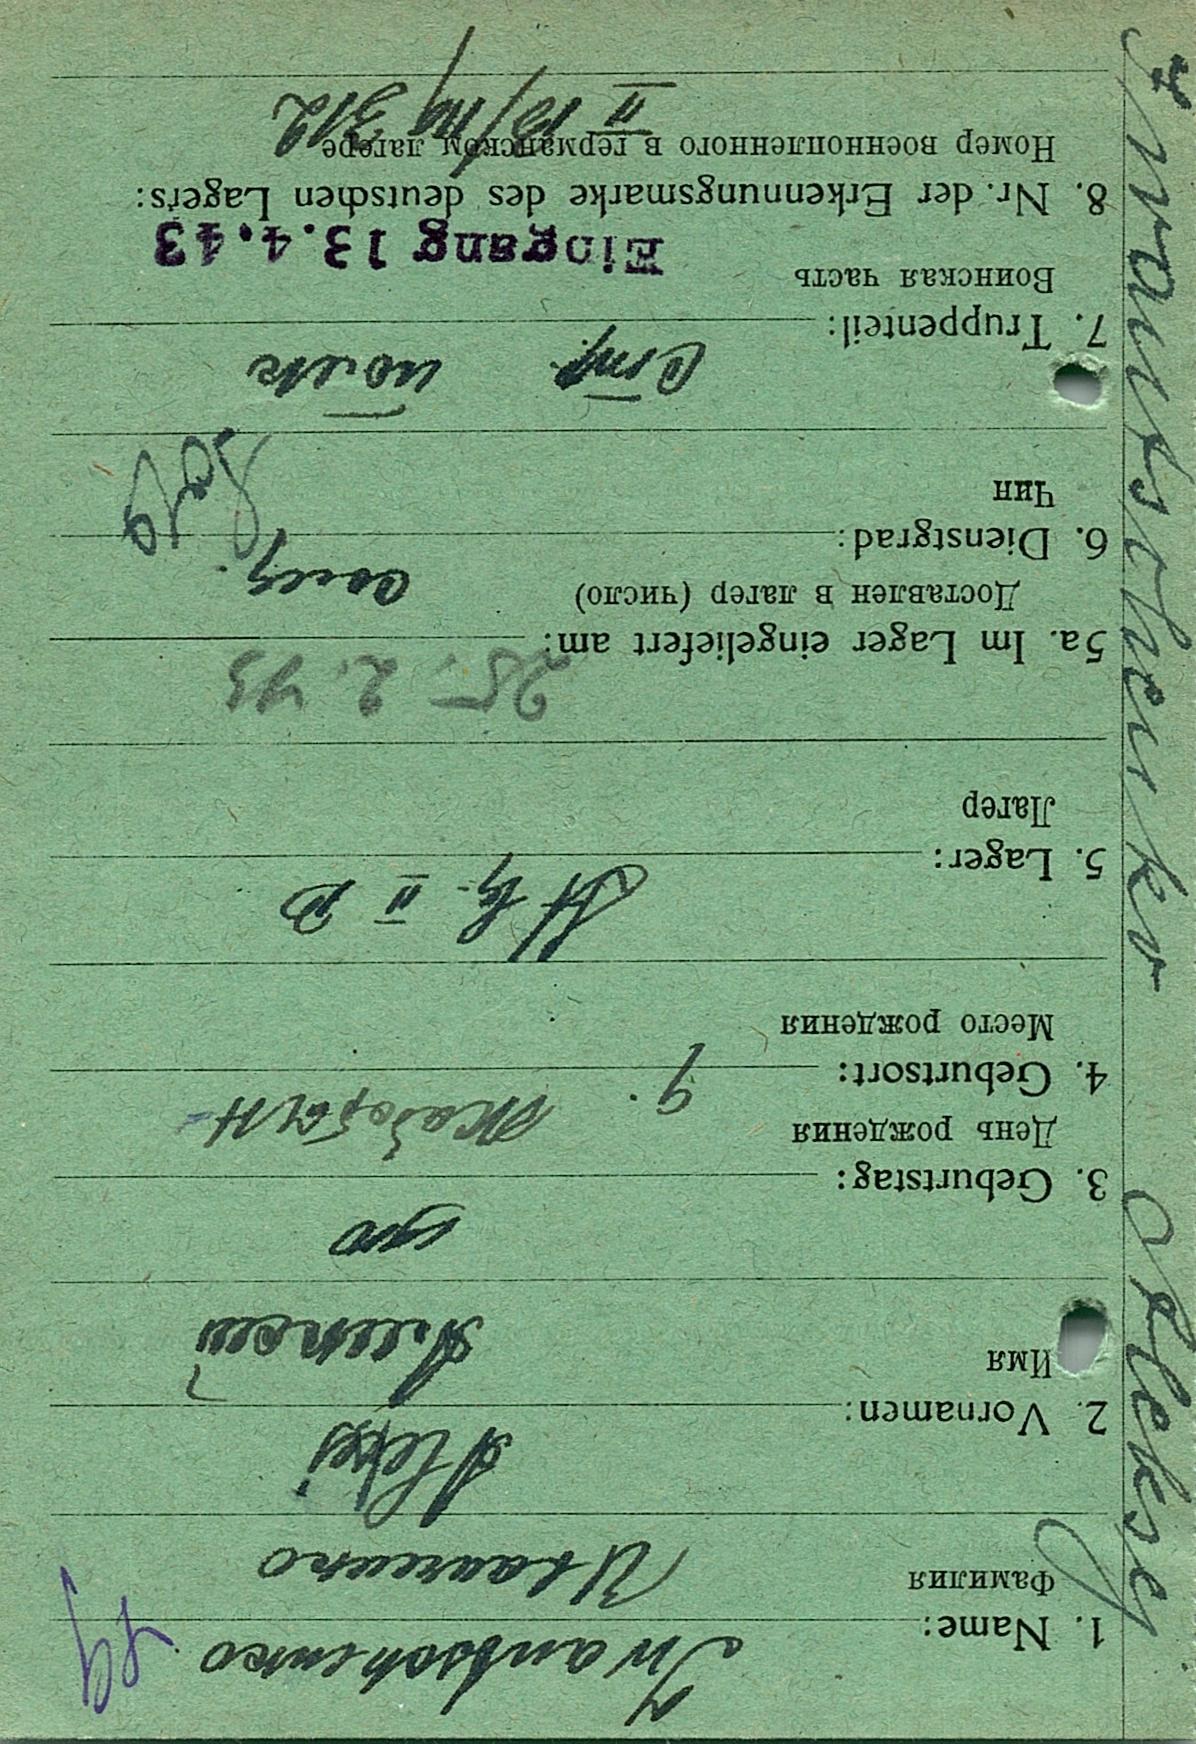 Iwantschenko
1. Name:
Фамилия
Иванченко
Aleksej
2. Vornamen:
Имя
Алексей
3. Geburtstag:
День рождения
4. Geburtsort:
Место рождения
Stlg. II D
5. Lager:
Лагер
25. 2. 43
5a. Im Lager eingeliefert am:
Доставлен в лагер (число)
6. Dienstgrad:
Чин
Стр. полк
7. Truppenteil:
Воинская часть
Eingang 13.4.43
8. Nr. der Erkennungsmarke des deutschen Lagers:
Номер военнопленного в германском лагере
II D/119 312
Iwantschenko Aleksej